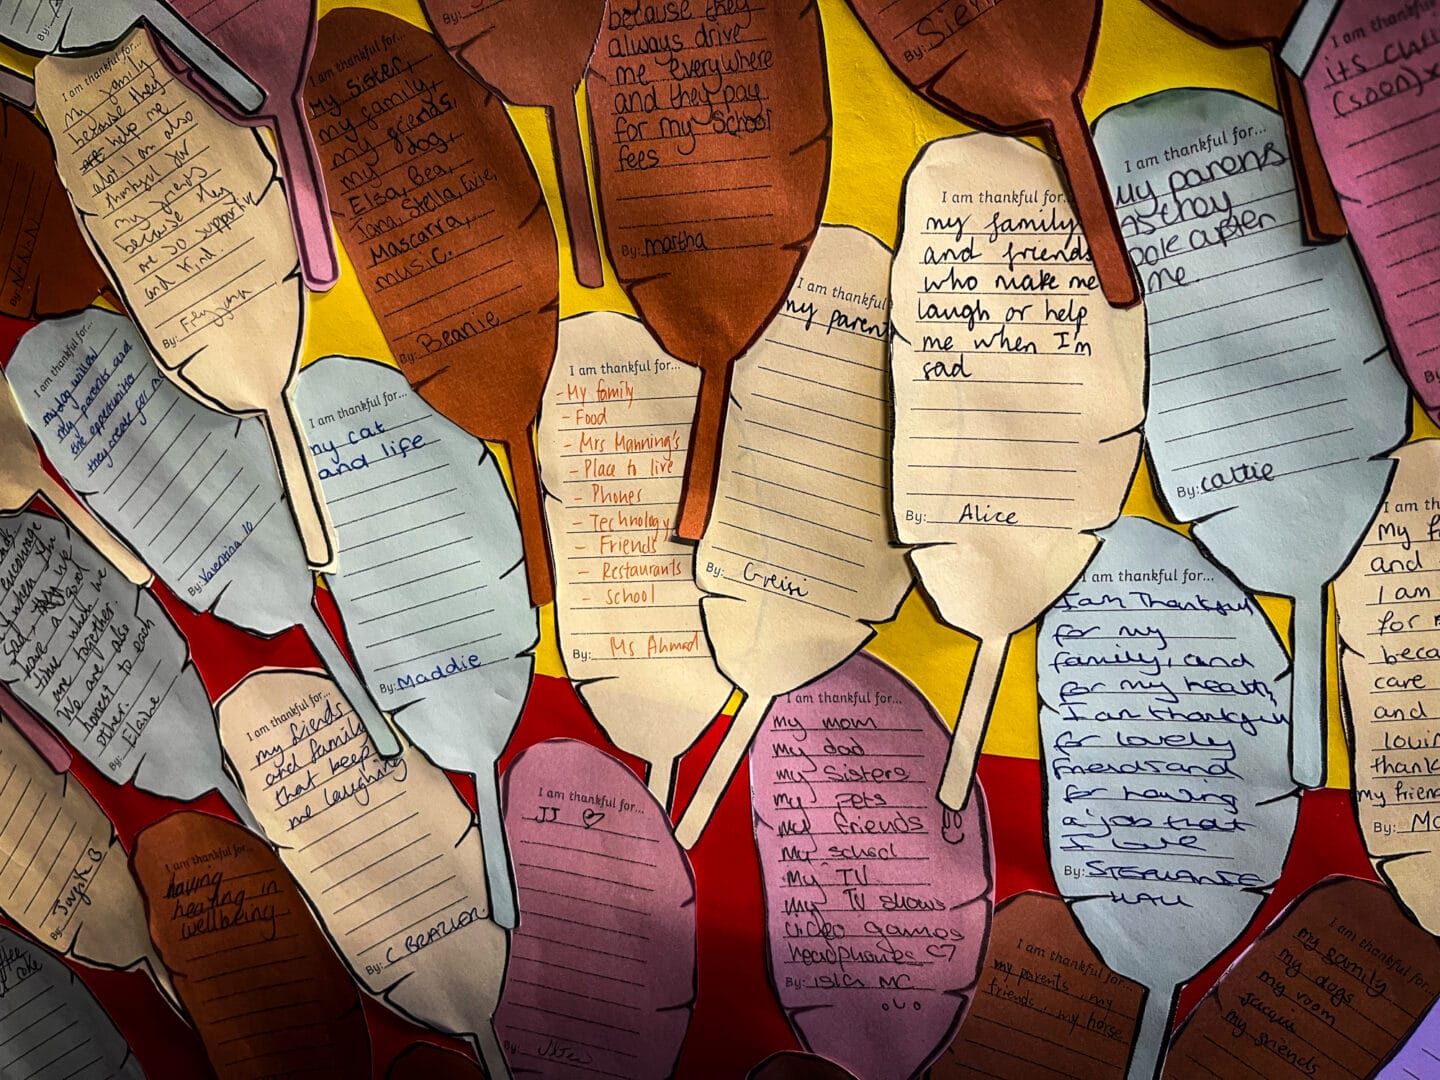 I am thankful for...
My family
because they
help me
alot I am also
thankful for
my friends
because they
are so supportive
and kind.
I am thankful for...
My sister,
my family,
my friends,
my dog,
Elsa, Bea,
Tara, Stella, Evie,
Mascarra,
music.
By: Beanie
By:
because they
always drive
me everywhere
and they pay
for my school
fees
By: martha
By:
I am thankful for...
my family
and friends
who make me
laugh or help
me when I'm
sad
By: Alice
I am thankful for...
My parents
As they
after
me.
By: cattie
I am thankful
its
(soon)x
By: N-N-N
I am thankful for...
my dog willow
my parents and
the opportunities
they create for
By: Valentina 10
I am thankful for...
my cat
and life
By: Maddie
I am thankful for...
- My family
- Food
- Mrs Manning's
- Place to live
- Phones
- Technology
- Friends
- Restaurants
- school
By: Ms Ahmad
I am thankful
my parent
By: Greisi
I am thankful for...
I am Thankful
for my
family, and
for my health,
I am thankful
for lovely
friends and
for having
a job that
I love
By: STEPHANIE
HALL
I am th
My f
and
I am
for
beca
care
and
lovin
thank
my friend
By: Mo
encourage
when I'm
sad, they we
have a good
time when we
are together.
We are also
honest to each
other.
By: Elaine
I am thankful for...
my friends
and family
that keep
me laughing
By: C BRAZIER
I am thankful for...
JJ ♡
By:
I am thankful for...
my mom
my dad
my sisters
my pets
my friends
my school
my TV
my TV shows
video games
headphones ♡
By: isla MC
By:
I am thankful for...
having
heating in
wellbeing
coke
I am thankful for...
my parents, my
friends, my horse
I am thankful for...
my family
my dogs
my room
my friends